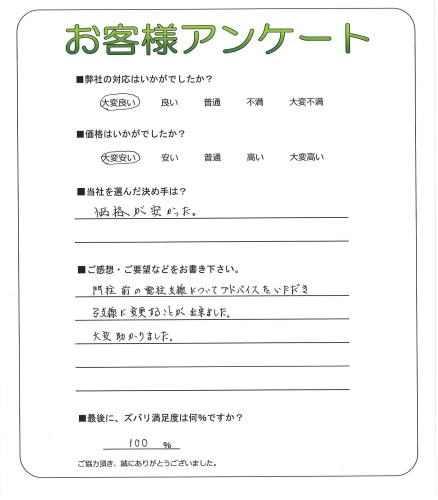 お客様アンケート
■弊社の対応はいかがでしたか？
大変良い 良い 普通 不満 大変不満
■価格はいかがでしたか？
大変安い 安い 普通 高い 大変高い
■当社を選んだ決め手は？
価格が安かった。
■ご感想・ご要望などをお書き下さい。
門柱前の電柱支線についてアドバイスをいただき
弓支線に変更することが出来ました。
大変助かりました。
■最後に、ズバリ満足度は何％ですか？
100 ％
ご協力頂き、誠にありがとうございました。